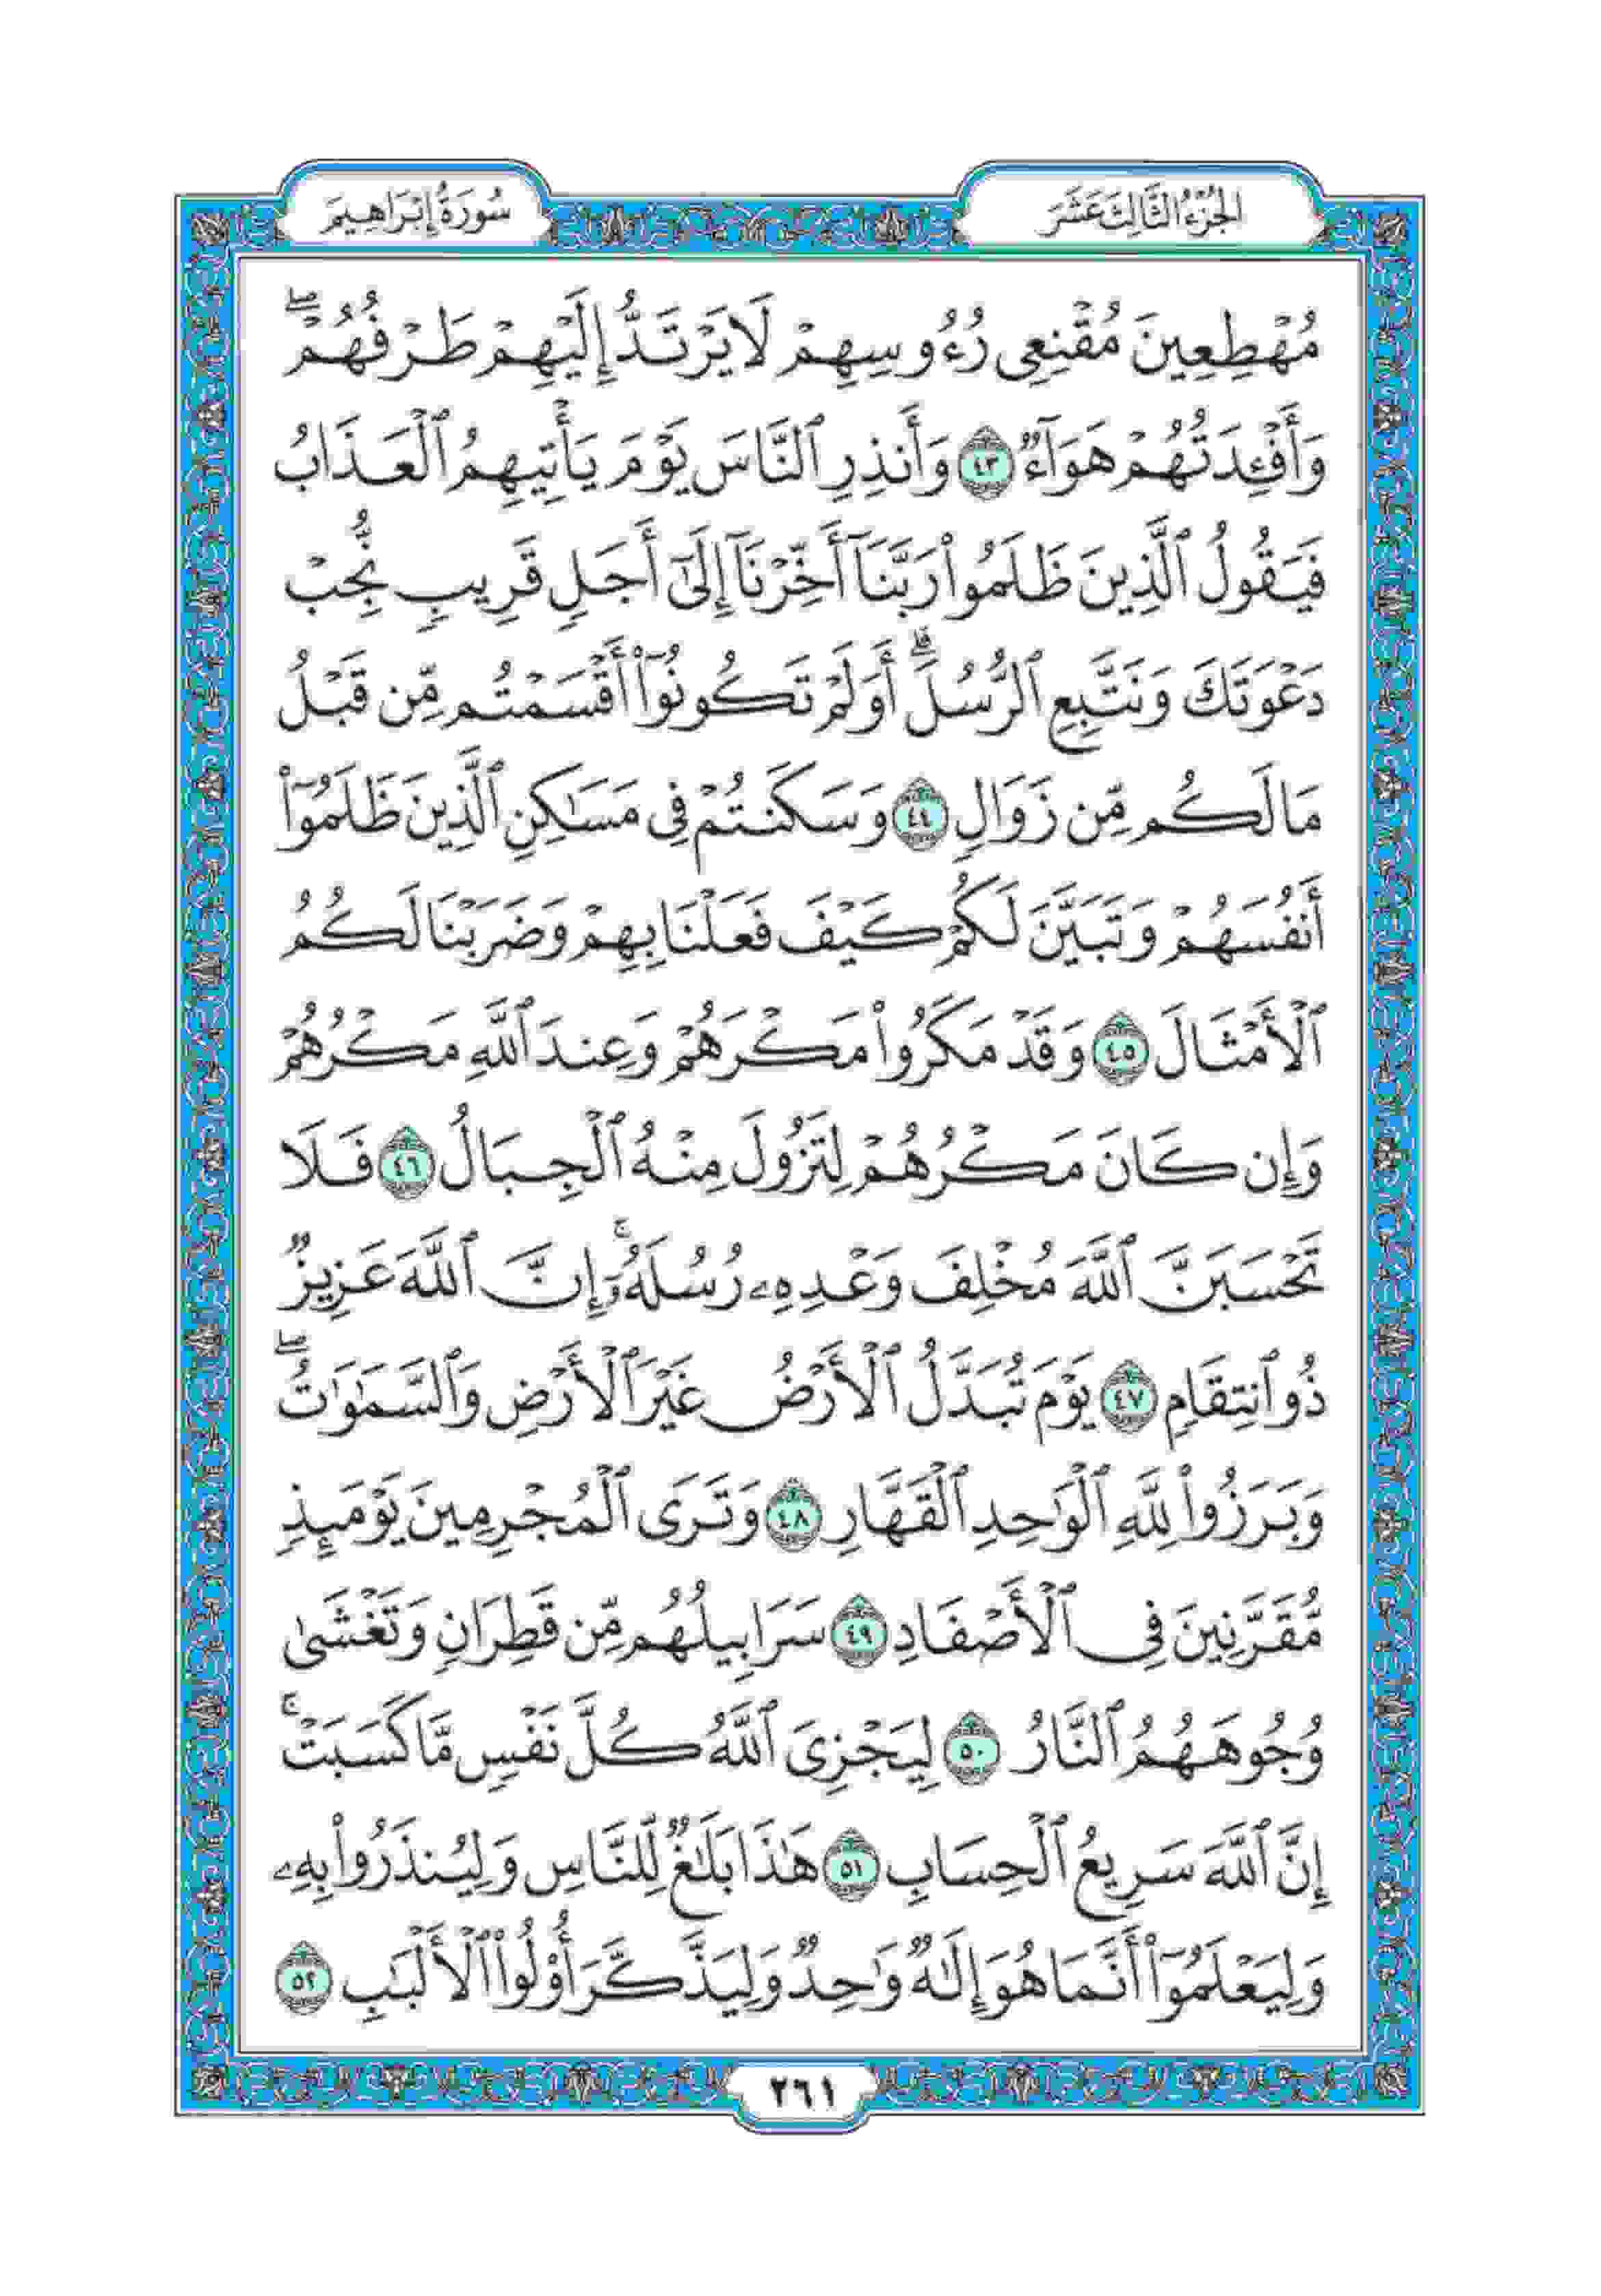 الجزء الثالث عشر
سورة إبراهيم
مُهْطِعِينَ مُقْنِعِي رُءُوسِهِمْ لَا يَرْتَدُّ إِلَيْهِمْ طَرْفُهُمْ ۖ
وَأَفْـِٔدَتُهُمْ هَوَآءٌ ٤٣ وَأَنذِرِ ٱلنَّاسَ يَوْمَ يَأْتِيهِمُ ٱلْعَذَابُ
فَيَقُولُ ٱلَّذِينَ ظَلَمُوا۟ رَبَّنَآ أَخِّرْنَآ إِلَىٰٓ أَجَلٍ قَرِيبٍ نُّجِبْ
دَعْوَتَكَ وَنَتَّبِعِ ٱلرُّسُلَ ۗ أَوَلَمْ تَكُونُوٓا۟ أَقْسَمْتُم مِّن قَبْلُ
مَا لَكُم مِّن زَوَالٍ ٤٤ وَسَكَنتُمْ فِي مَسَٰكِنِ ٱلَّذِينَ ظَلَمُوٓا۟
أَنفُسَهُمْ وَتَبَيَّنَ لَكُمْ كَيْفَ فَعَلْنَا بِهِمْ وَضَرَبْنَا لَكُمُ
ٱلْأَمْثَالَ ٤٥ وَقَدْ مَكَرُوا۟ مَكْرَهُمْ وَعِندَ ٱللَّهِ مَكْرُهُمْ
وَإِن كَانَ مَكْرُهُمْ لِتَزُولَ مِنْهُ ٱلْجِبَالُ ٤٦ فَلَا
تَحْسَبَنَّ ٱللَّهَ مُخْلِفَ وَعْدِهِۦ رُسُلَهُۥٓ ۚ إِنَّ ٱللَّهَ عَزِيزٌ
ذُو ٱنتِقَامٍ ٤٧ يَوْمَ تُبَدَّلُ ٱلْأَرْضُ غَيْرَ ٱلْأَرْضِ وَٱلسَّمَٰوَٰتُ ۖ
وَبَرَزُوا۟ لِلَّهِ ٱلْوَٰحِدِ ٱلْقَهَّارِ ٤٨ وَتَرَى ٱلْمُجْرِمِينَ يَوْمَئِذٍ
مُّقَرَّنِينَ فِي ٱلْأَصْفَادِ ٤٩ سَرَابِيلُهُم مِّن قَطِرَانٍ وَتَغْشَىٰ
وُجُوهَهُمُ ٱلنَّارُ ٥٠ لِيَجْزِيَ ٱللَّهُ كُلَّ نَفْسٍ مَّا كَسَبَتْ ۚ
إِنَّ ٱللَّهَ سَرِيعُ ٱلْحِسَابِ ٥١ هَٰذَا بَلَٰغٌ لِّلنَّاسِ وَلِيُنذَرُوا۟ بِهِۦ
وَلِيَعْلَمُوٓا۟ أَنَّمَا هُوَ إِلَٰهٌ وَٰحِدٌ وَلِيَذَّكَّرَ أُو۟لُوا۟ ٱلْأَلْبَٰبِ ٥٢
٢٦١